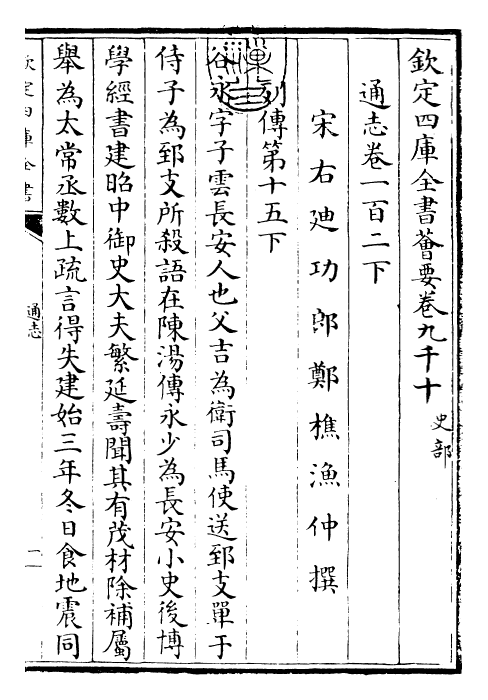 欽定四庫全書薈要卷九千十 史部
通志卷一百二下
宋右迪功郎鄭樵漁仲撰
列傳第十五下
谷永字子雲長安人也父吉為衛司馬使送郅支單于
侍子為郅支所殺語在陳湯傳永少為長安小史後博
學經書建昭中御史大夫繁延壽聞其有茂材除補屬
舉為太常丞數上疏言得失建始三年冬日食地震同
欽定四庫全書
通志
一